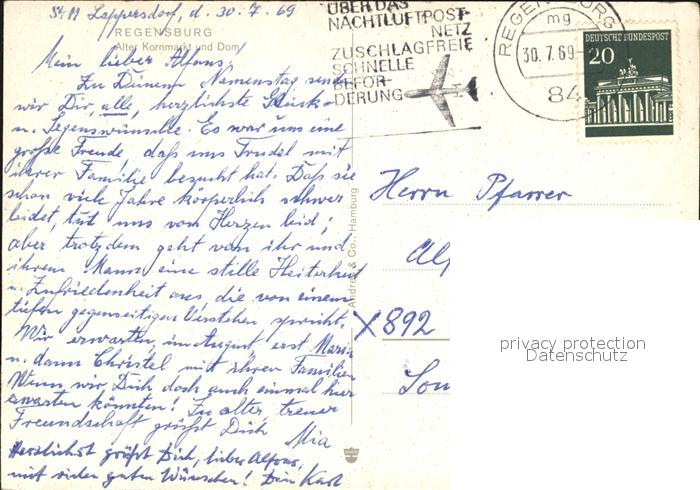 St. N Lappersdorf, d. 30.7.69
REGENSBURG
Alter Kornmarkt und Dom
Mein lieber Alfons!
Zu Deinem Namenstag senden
wir Dir, alle, herzlichste Glück-
u. Segenswünsche. Es war uns eine
große Freude, daß uns Trudel mit
ihrer Familie besucht hat. Daß sie
schon viele Jahre körperlich schwer
leidet, tut uns von Herzen leid;
aber trotzdem geht von ihr und
ihrem Mann eine stille Heiterkeit
u. Zufriedenheit aus, die von einem
tiefen gegenseitigen Verstehen spricht.
Wir erwarten im August erst Maria
u. dann Christel mit ihren Familien.
Wenn wir Dich doch auch einmal hier
erwarten könnten! In alter, treuer
Freundschaft grüßt Dich
Mia
Herzlichst grüßt Dich, lieber Alfons,
mit vielen guten Wünschen! Dein Karl
Andres & Co., Hamburg
ÜBER DAS
NACHTLUFTPOST-
NETZ
ZUSCHLAGFREIE
SCHNELLE
BEFÖR-
DERUNG
REGENSBURG
mg
30.7.69
84
DEUTSCHE BUNDESPOST
20
Herrn Pfarrer
Alf
X 892
Son
privacy protection
Datenschutz